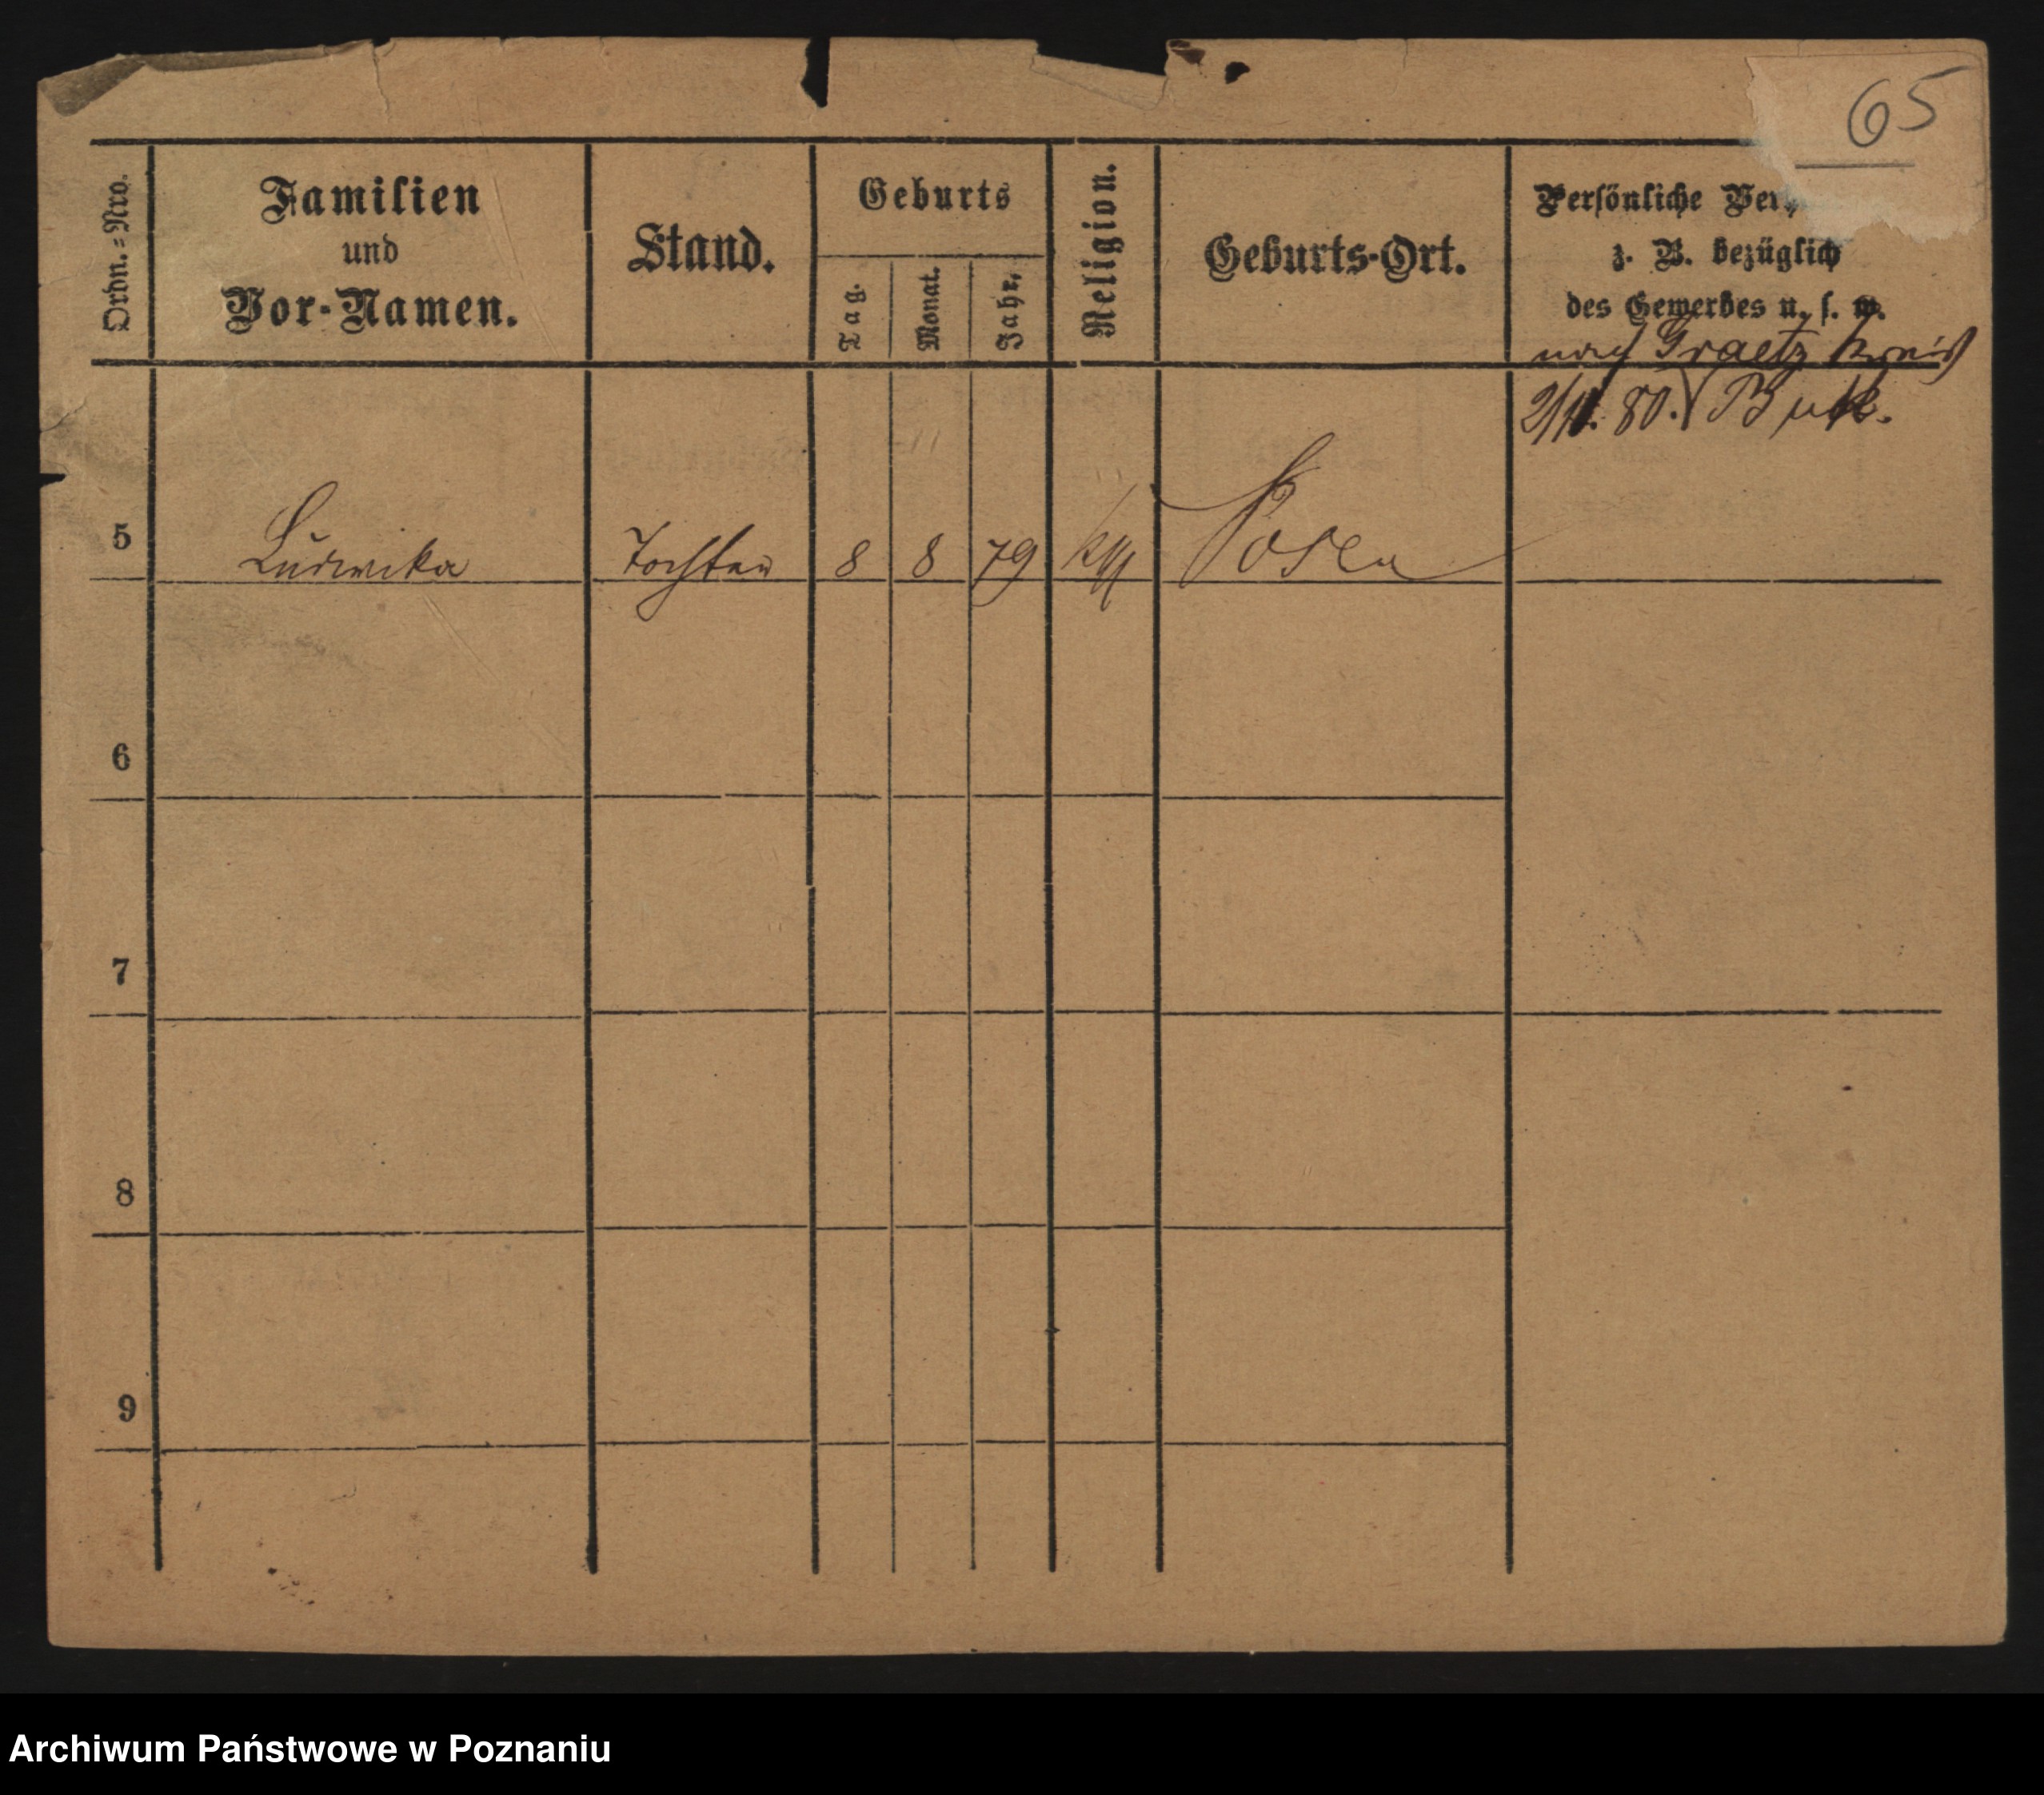 65
Ordn.=Nro.
Familien
und
Vor-Namen.
Stand.
Geburts
Tag.
Monat.
Jahr.
Religion.
Geburts-Ort.
Persönliche Ver
z. B. bezüglich
des Gewerbes u. s. w.
nach Graetz Kreis
80. Buk.
5 Ludwika Tochter 8 8 79 kth Posen
6
7
8
9
Archiwum Państwowe w Poznaniu